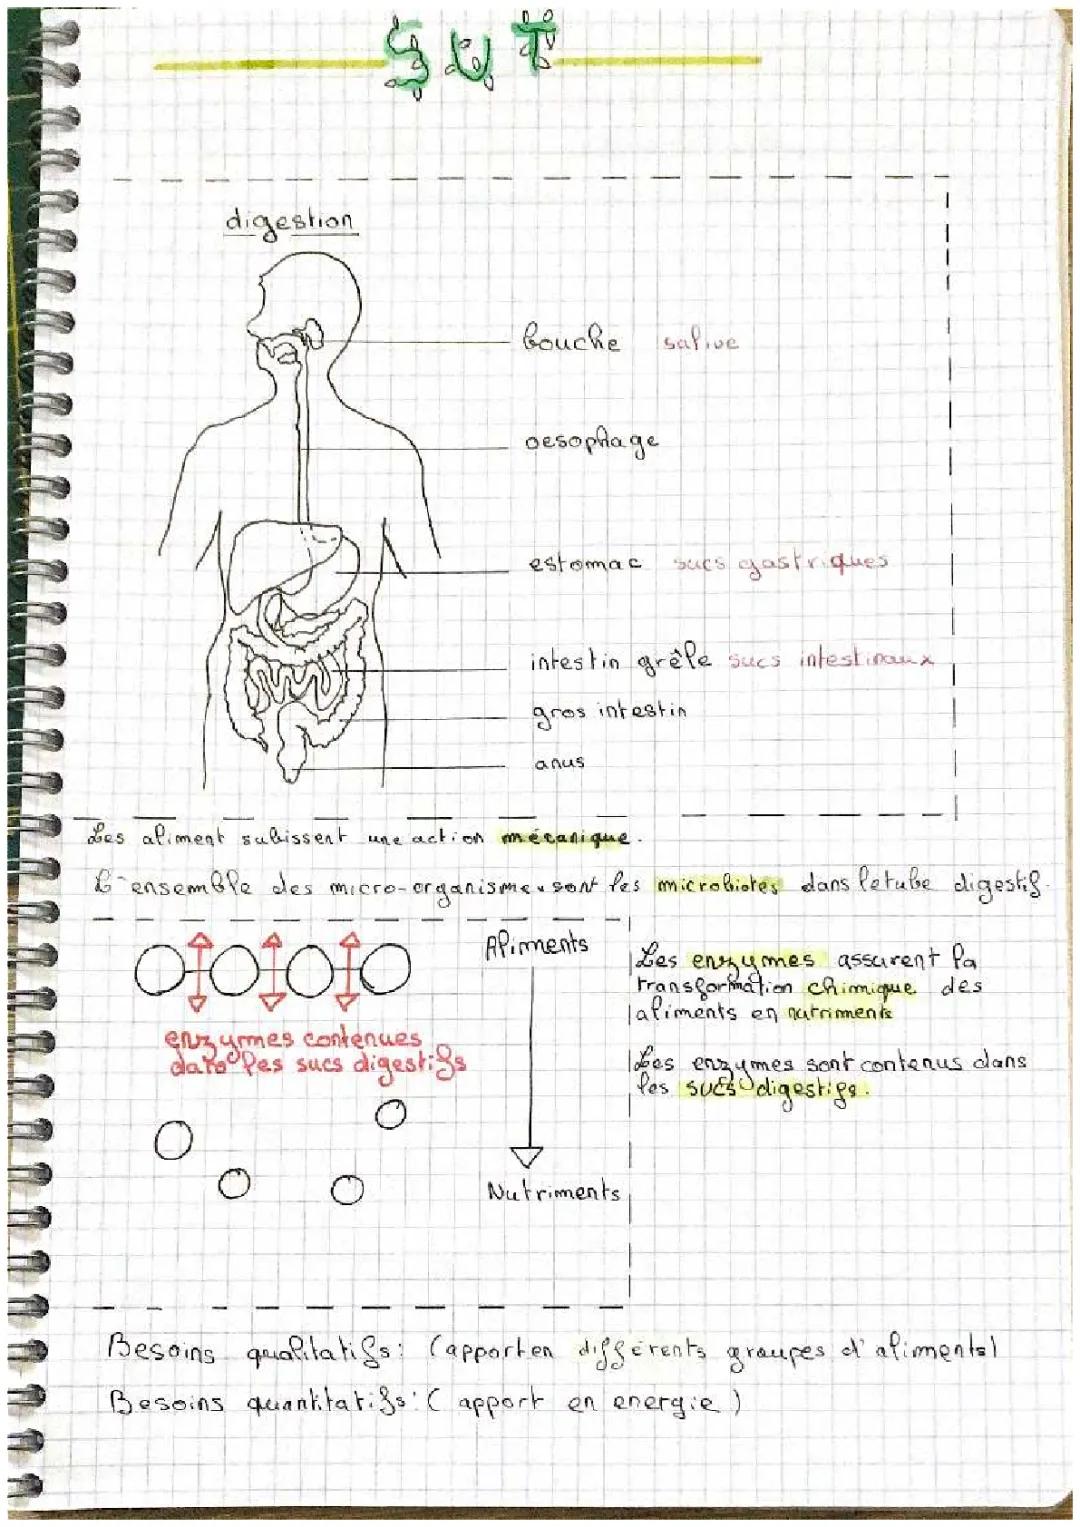 SVT
digestion
bouche salive
oesophage
estomac sucs gastriques
intestin grêle sucs intestinaux
gros intestin
anus
Les aliment subissent une action mécanique.
L'ensemble des micro-organismes sont les microbiotes dans le tube digestif.
Aliments
enzymes contenues
dans les sucs digestifs
Nutriments
Les enzymes assurent la
transformation chimique des
aliments en nutriments
Les enzymes sont contenus dans
les sucs digestifs.
Besoins qualitatifs: (apport en différents groupes d'aliments)
Besoins quantitatifs: (apport en energie)